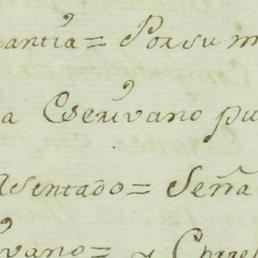 antia = Por su m
a Escrivano pu
Asentado = Seña
vano =